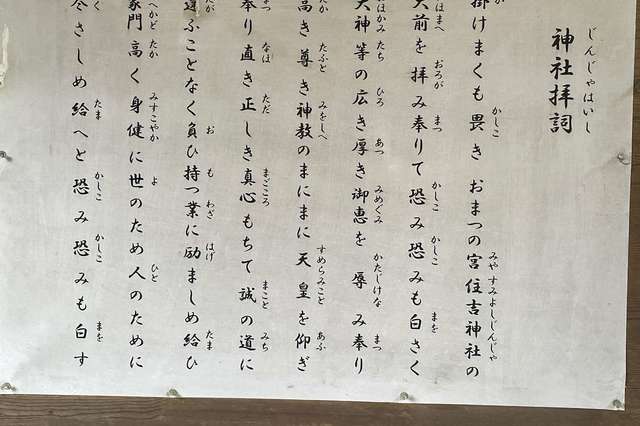 じんじゃはいし
神社拝詞
か かしこ みや すみよしじんじゃ
掛けまくも畏き おまつの宮 住吉神社の
はまへ おろが まつ かしこ かしこ まを
大前を拝み奉りて恐み恐みも白さく
はかみ たち ひろ あつ みめぐみ かたじけな まつ
大神等の広き厚き御恵を辱み奉り
たか たふと みをしへ すめらみこと あふ
高き尊き神教のまにまに天皇を仰ぎ
まつ なほ ただ まごころ まこと みち
奉り直き正しき真心もちて誠の道に
たが お も わざ はげ たま
違ふことなく負ひ持つ業に励ましめ給ひ
へかど たか みすこやか よ ひと
家門高く身健に世のため人のために
く たま かしこ かしこ まを
尽さしめ給へと恐み恐みも白す